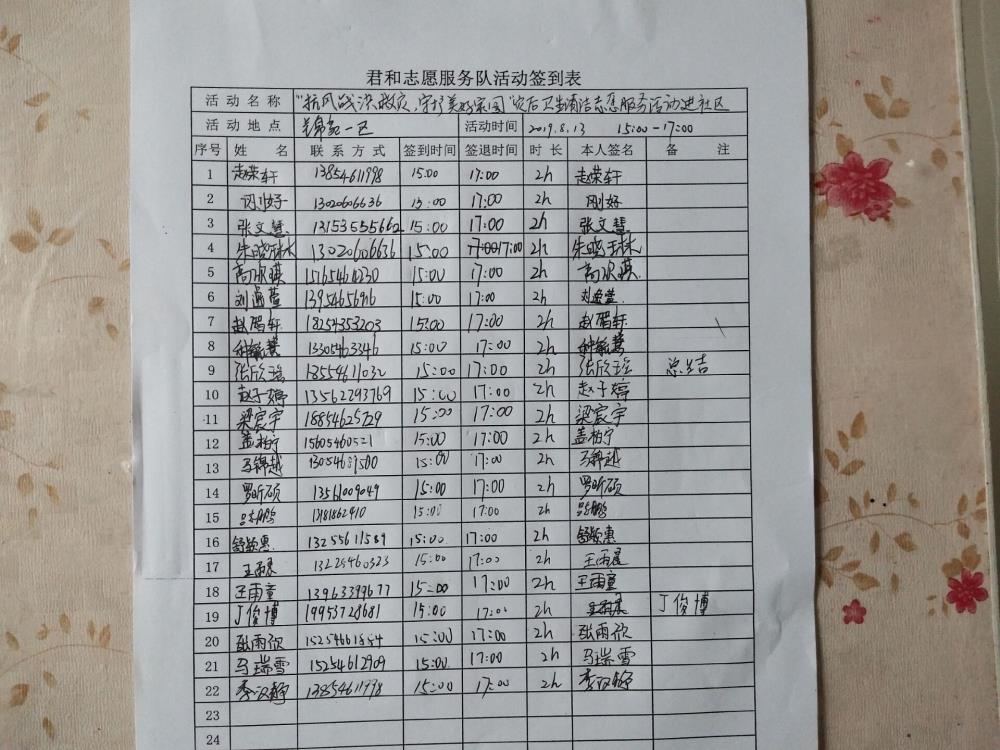 君和志愿服务队活动签到表
活动名称 "抗风战洪救灾,守护美好家园"灾后卫生清洁志愿服务活动进社区
活动地点 景苑一区 活动时间 2019.8.13 15:00-17:00
序号 姓名 联系方式 签到时间 签退时间 时长 本人签名 备注
1 赵荣轩 13854611998 15:00 17:00 2h 赵荣轩
2 刚好 13020606636 15:00 17:00 2h 刚好
3 张文慧 13153555662 15:00 17:00 2h 张文慧
4 朱晓琳 13020606636 15:00 17:00 2h 朱晓琳
5 高琪 15:00 17:00 2h 高琪
6 刘萱 13954656916 15:00 17:00 2h 刘萱
7 赵珺轩 18254353203 15:00 17:00 2h 赵珺轩
8 钟毓慧 13305463346 15:00 17:00 2h 钟毓慧
9 张欣瑶 18554611032 15:00 17:00 2h 张欣瑶 总结
10 赵子婷 13562293769 15:00 17:00 2h 赵子婷
11 梁宸宇 18854625729 15:00 17:00 2h 梁宸宇
12 盖柏宁 15605460521 15:00 17:00 2h 盖柏宁
13 马锦越 13054689500 15:00 17:00 2h 马锦越
14 罗昕硕 13561009049 15:00 17:00 2h 罗昕硕
15 15:00 17:00 2h
16 舒颖惠 13255611589 15:00 17:00 2h 舒颖惠
17 王雨晨 13225460323 15:00 17:00 2h 王雨晨
18 王雨童 13963399677 15:00 17:00 2h 王雨童
19 丁俊博 19953728681 15:00 17:00 2h 丁俊博
20 张雨欣 15254661884 15:00 17:00 2h 张雨欣
21 马瑞雪 15254612909 15:00 17:00 2h 马瑞雪
22 李汉静 13854611998 15:00 17:00 2h 李汉静
23
24